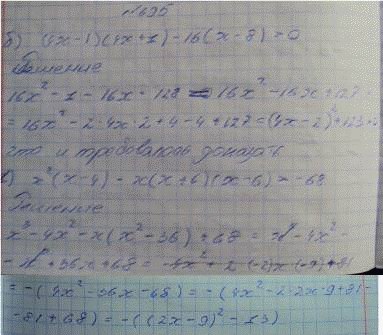 №695
б) (4x-1)(4x+1)-16(x-8)>0
Решение
16x²-1-16x+128 = 16x²-16x+127=
=16x²-2·4x·2+4-4+127=(4x-2)²+123>0
что и требовалось доказать
в) x²(x-4)-x(x+6)(x-6)>-68
Решение
x³-4x²-x(x²-36)+68 = x³-4x²-
-x³+36x+68= -4x²+2·(-2)x·(-9)+81
=-(4x²-36x-68)=-(4x²-2·2x·9+81-
-81+68)=-((2x-9)²-13)